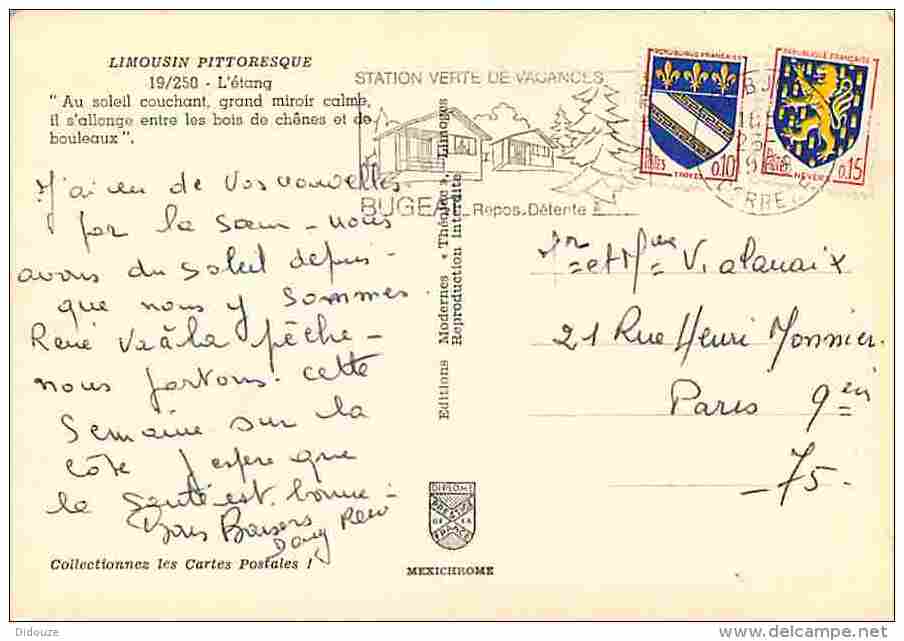 LIMOUSIN PITTORESQUE
19/250 - L'étang
"Au soleil couchant, grand miroir calme,
il s'allonge entre les bois de chênes et de
bouleaux".
J'ai eu de vos nouvelles
par la sœur - nous
avons du soleil depuis -
que nous y sommes.
René va à la pêche -
nous partons cette
semaine sur la
côte j'espère que
la santé est bonne -
Bons Baisers
Collectionnez les Cartes Postales !
Editions Modernes « Théojac », Limoges
Reproduction Interdite
DIPLOME
PRESTIGE
DE LA
FRANCE
MEXICHROME
STATION VERTE DE VACANCES
BUGEAT Repos-Détente
CORREZE
REPUBLIQUE FRANÇAISE
POSTES
0,10
TROYES
REPUBLIQUE FRANÇAISE
POSTES
0,15
NEVERS
Mr et Mme Vialanaix
21 Rue Henri Monnier.
Paris 9em
- 75 -
Didouze
delcampe.net